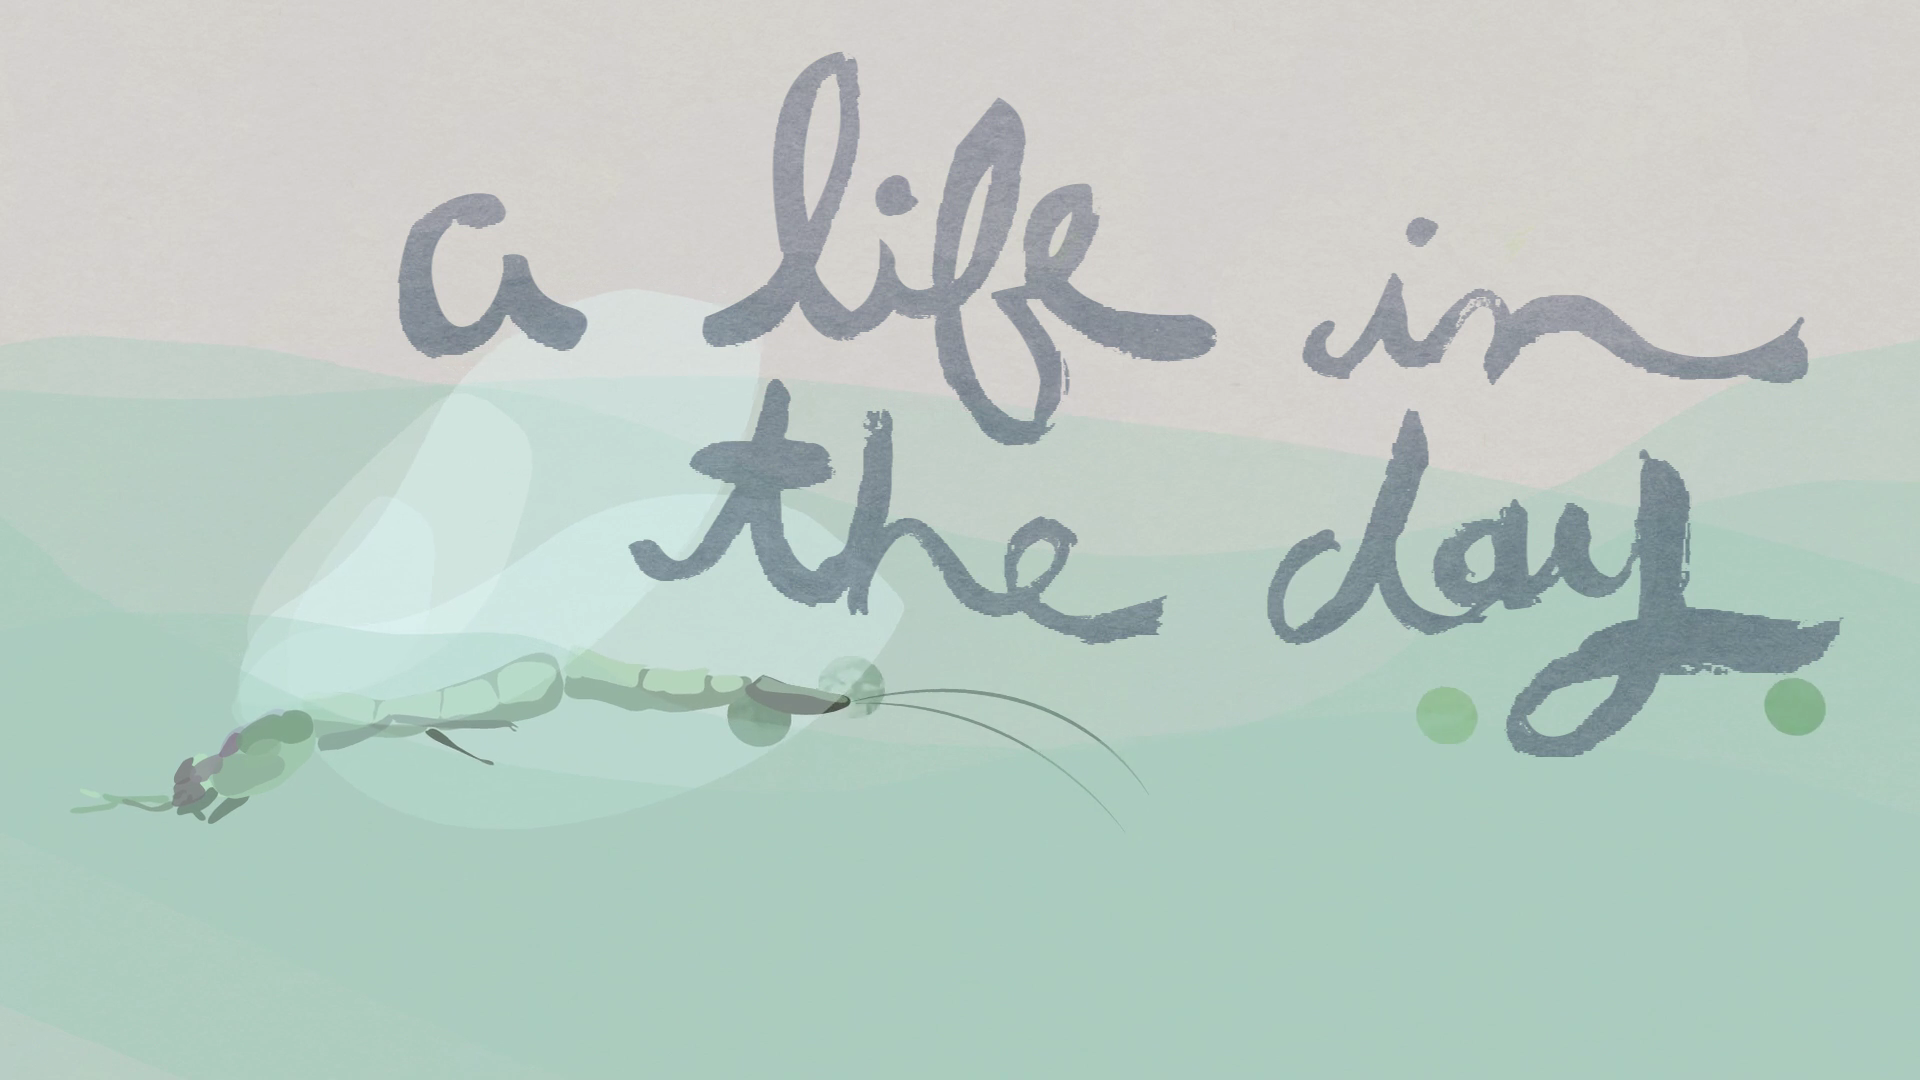 a life in
the day